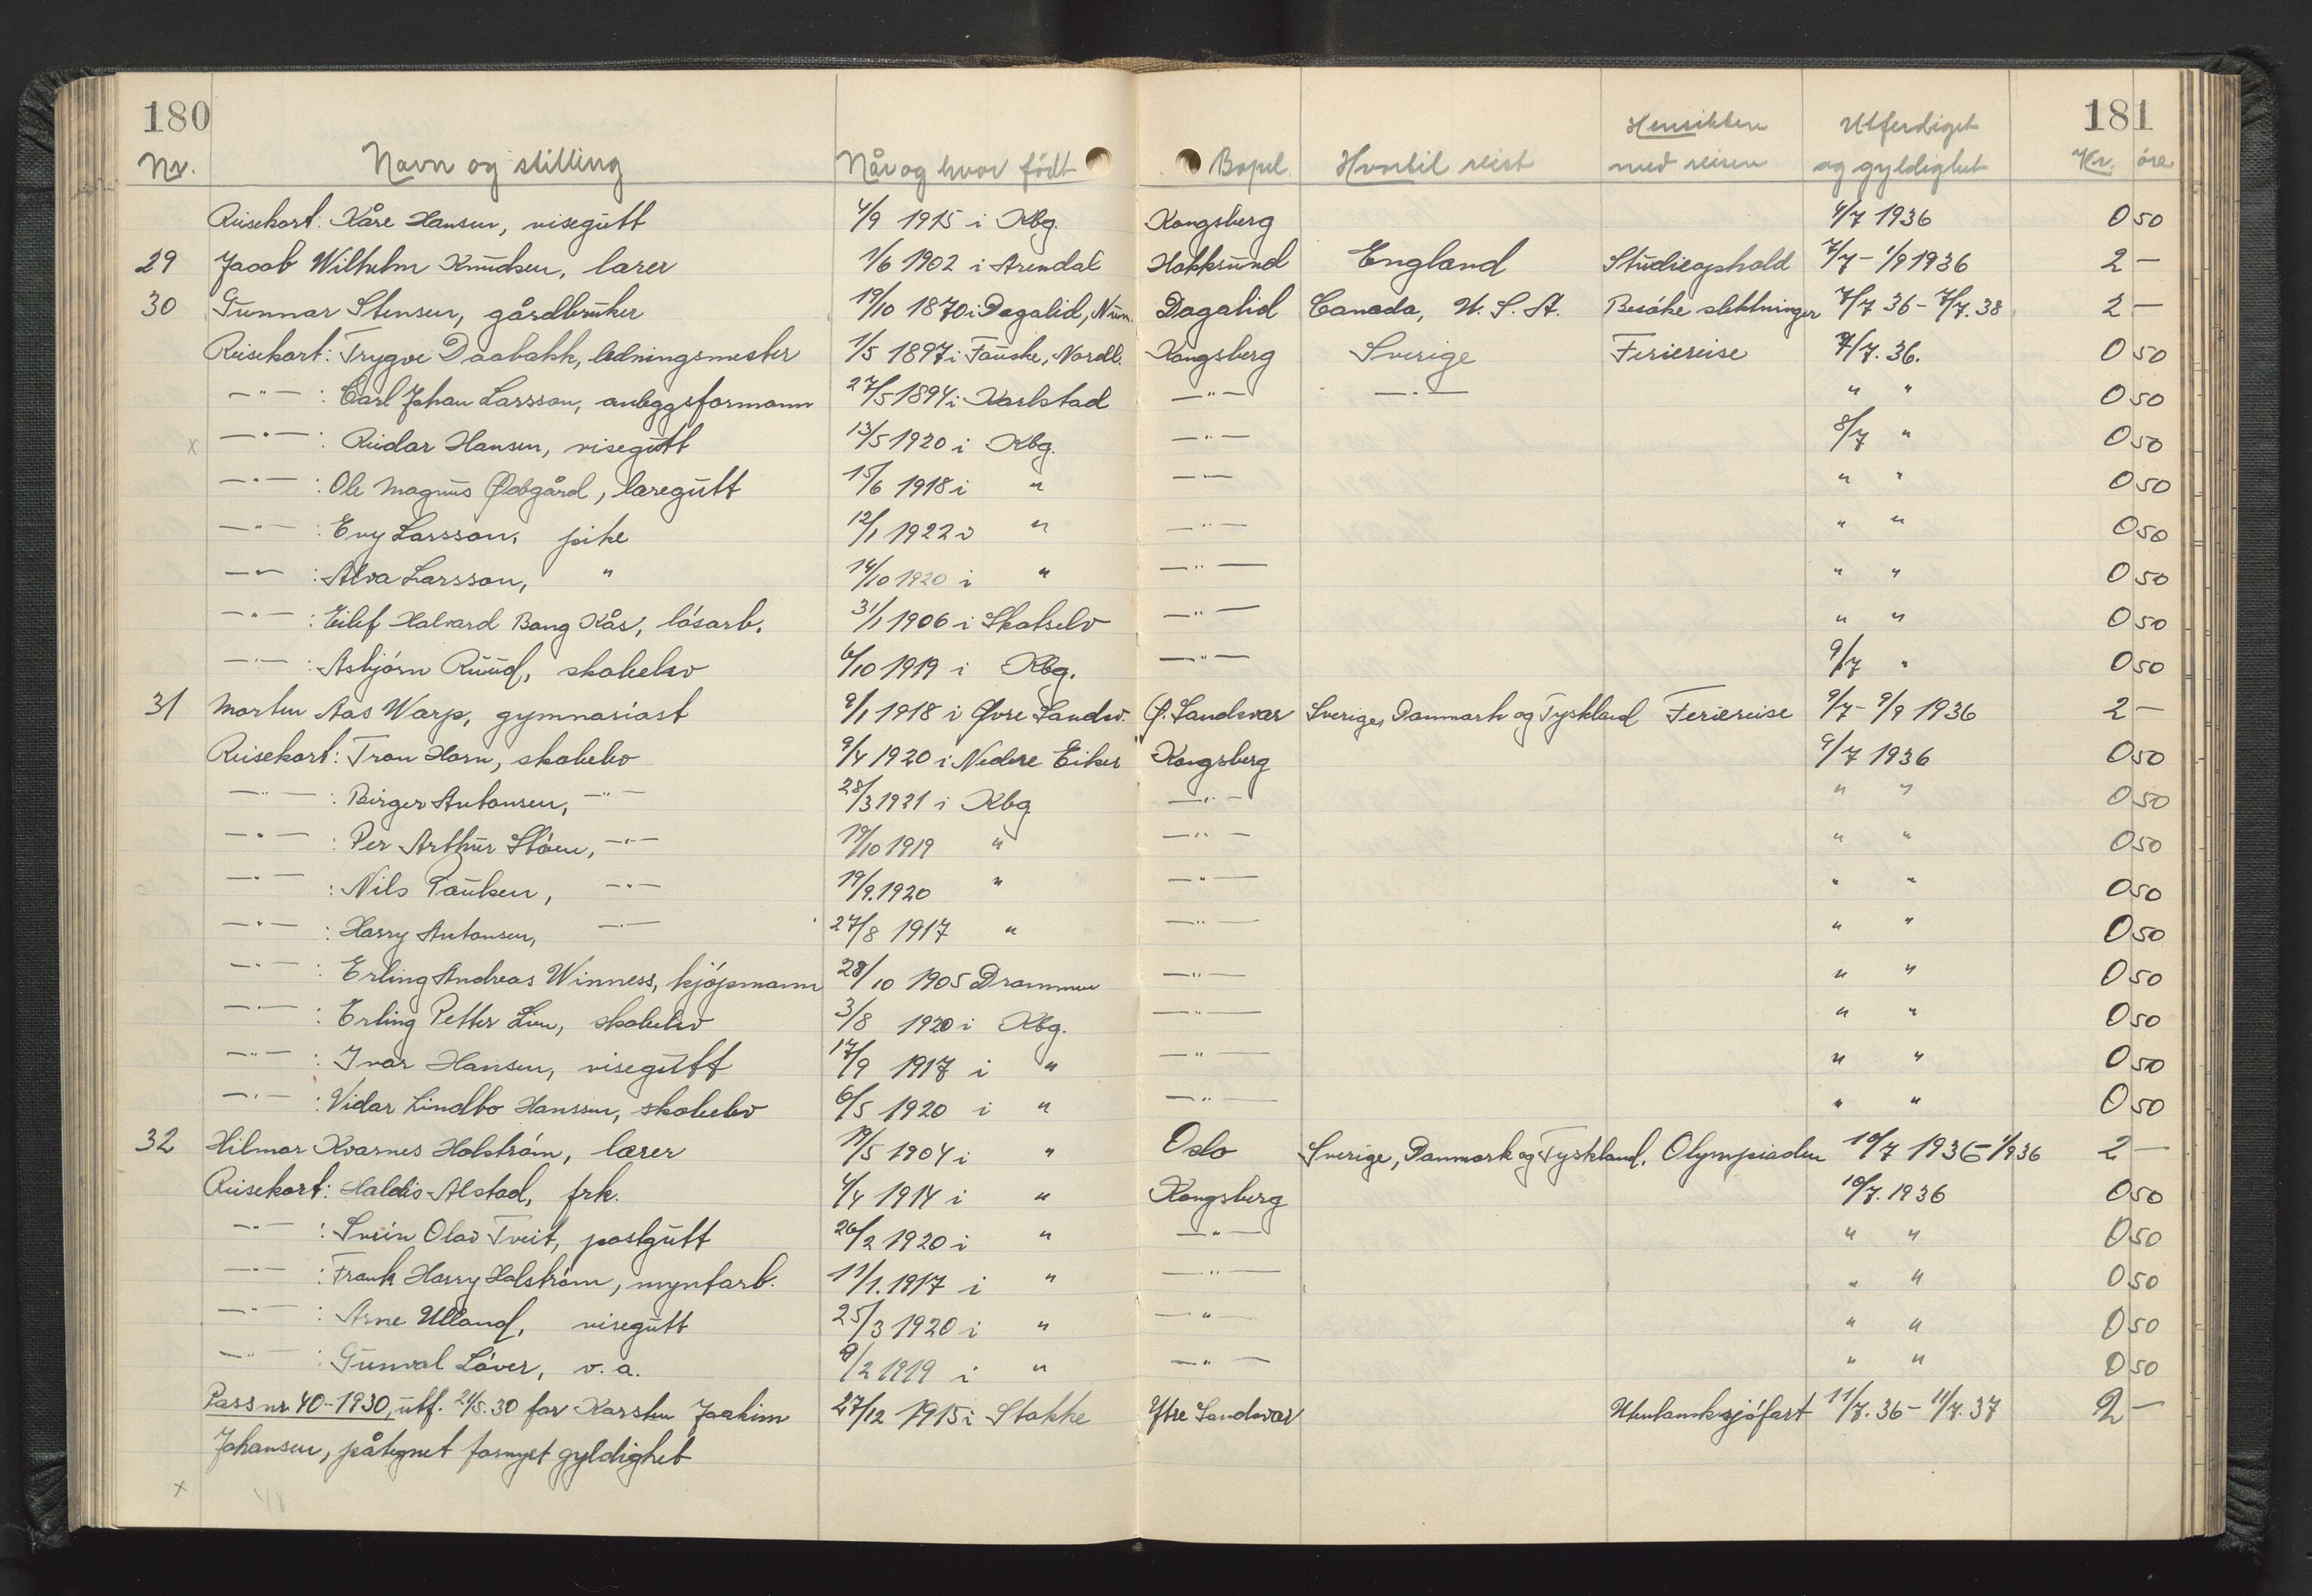 180 181
Hensikten Utferdiget
Nr. Navn og stilling Når og hvor født Bopel Hvortil reist med reisen og gyldighet Kr. øre
Reisekort: Kåre Hansen, visegutt 4/9 1915 i Kbg. Kongsberg 4/7 1936 0 50
29 Jacob Wilhelm Knudsen, lærer 1/6 1902 i Arendal Hokksund England Studieophold 7/7 - 1/9 1936 2 -
30 Gunnar Stensen, gårdbruker 19/10 1870 i Dagalid, Num. Dagalid Canada, U.S.A. Besøke slektninger 7/7 36 - 7/7.38 2 -
Reisekort: Trygve Daabakk, ledningsmester 1/5 1897 i Fauske, Nordl. Kongsberg Sverige Feriereise 7/7.36. 0 50
-"- : Carl Johan Larsson, anleggsformann 27/5 1894 i Karlstad -"- -"- " " 0 50
x -"- : Reidar Hansen, visegutt 13/5 1920 i Kbg. -"- 8/7 " 0 50
-"- : Ole Magnus Ødegård, læregutt 15/6 1918 i " -"- " " 0 50
-"- : Evy Larsson, pike 12/1 1922 i " -"- " " 0 50
-"- : Alva Larsson, " 14/10 1920 i " -"- " " 0 50
-"- : Eilef Halvard Bang Kås, løsarb. 31/1 1906 i Skotselv -"- " " 0 50
-"- : Asbjørn Ruud, skoleelev 6/10 1919 i Kbg. -"- 9/7 " 0 50
31 Morten Aas Warp, gymnasiast 9/1 1918 i Øvre Sandsv. Ø. Sandsvær Sverige, Danmark og Tyskland Feriereise 9/7 - 9/9 1936 2 -
Reisekort: Tron Horn, skoleelev 9/4 1920 i Nedre Eiker Kongsberg 9/7 1936 0 50
-"- : Birger Antonsen, -"- 28/3 1921 i Kbg -"- " " 0 50
-"- : Per Arthur Støen, -"- 19/10 1919 " -"- " " 0 50
-"- : Nils Paulsen, -"- 19/9.1920 " -"- " " 0 50
-"- : Harry Antonsen, -"- 27/8 1917 " -"- " " 0 50
-"- : Erling Andreas Winness, kjøpmann 28/10 1905 Drammen -"- " " 0 50
-"- : Erling Petter Lien, skoleelev 3/8 1920 i Kbg. -"- " " 0 50
-"- : Ivar Hansen, visegutt 17/9 1917 i " -"- " " 0 50
-"- : Vidar Lindbo Hanssen, skoleelev 6/5 1920 i " -"- " " 0 50
32 Hilmar Kvarnes Holstrøm, lærer 19/5 1904 i " Oslo Sverige, Danmark og Tyskland. Olympiaden 10/7 1936 - 1/9 36 2 -
Reisekort: Haldis Alstad, frk. 4/4 1914 i " Kongsberg 10/7.1936 0 50
-"- : Svein Olav Tveit, postgutt 26/2 1920 i " -"- " " 0 50
-"- : Frank Harry Holstrøm, myntarb. 11/1.1917 i " -"- " " 0 50
-"- : Arne Ulland, visegutt 25/3 1920 i " -"- " " 0 50
-"- : Gunval Løver, v.a. 9/2 1919 i " -"- " " 0 50
Pass nr 40-1930, utf. 21/5.30 for Karsten Joakim 27/12 1915 i Stokke Ytre Sandsvær Utenlandssjøfart 11/7.36 - 11/7.37 2 -
Johansen, påtegnet fornyet gyldighet
x